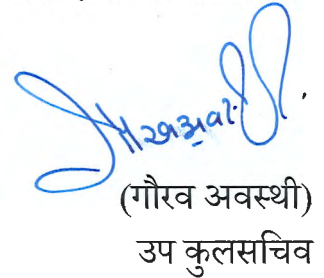 (गौरव अवस्थी)
उप कुलसचिव